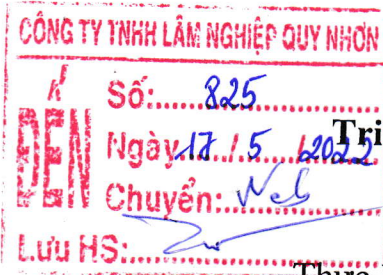 CÔNG TY TNHH LÂM NGHIỆP QUY NHƠN
ĐẾN
Số:.....825
Ngày.17./.5./2022
Tri
Chuyển:..Web
Lưu HS:
Thực